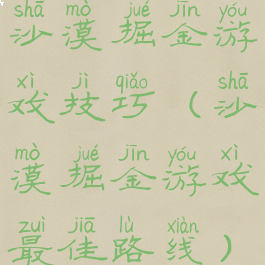 shā mò jué jīn yóu
沙漠掘金游
xì jì qiǎo shā
戏技巧(沙
mò jué jīn yóu xì
漠掘金游戏
zuì jiā lù xiàn
最佳路线)